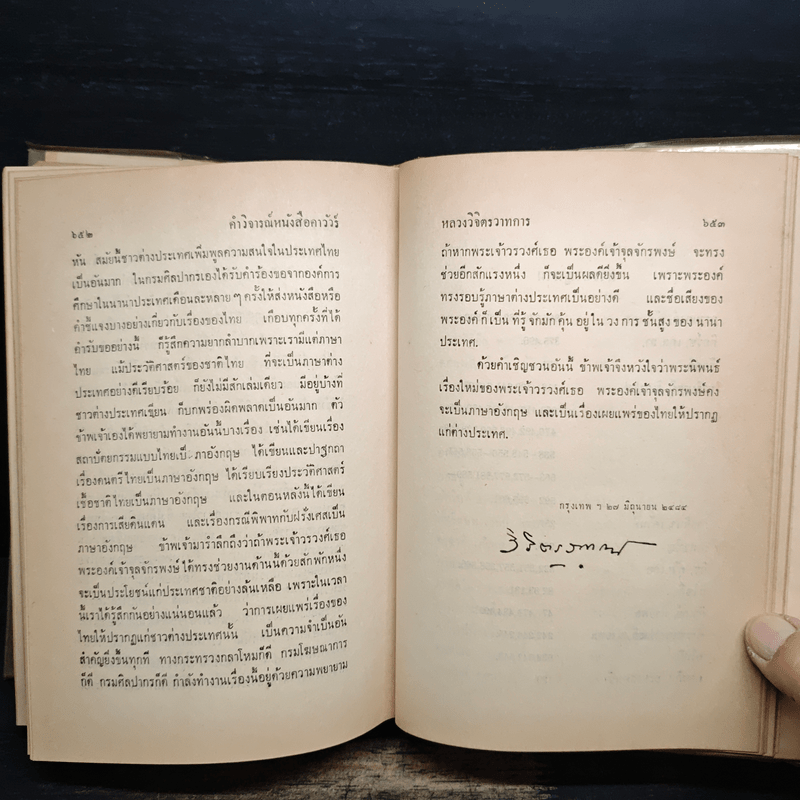 ๖๕๒ คำวิจารณ์หนังสือคาวัวร์
หัน สมัยนี้ชาวต่างประเทศเพิ่มพูลความสนใจในประเทศไทย
เป็นอันมาก ในกรมศิลปากรเองได้รับคำร้องขอจากองค์การ
ศึกษาในนานาประเทศเดือนละหลาย ๆ ครั้งให้ส่งหนังสือหรือ
คำชี้แจงบางอย่างเกี่ยวกับเรื่องของไทย เกือบทุกครั้งที่ได้
คำรับขออย่างนี้ ก็รู้สึกความยากลำบากเพราะเรามีแต่ภาษา
ไทย แม้ประวัติศาสตร์ของชาติไทย ที่จะเป็นภาษาต่าง
ประเทศอย่างดีเรียบร้อย ก็ยังไม่มีสักเล่มเดียว มีอยู่บ้างที่
ชาวต่างประเทศเขียน ก็บกพร่องผิดพลาดเป็นอันมาก ตัว
ข้าพเจ้าเองได้พยายามทำงานอันนี้บางเรื่อง เช่นได้เขียนเรื่อง
สถาปัตยกรรมแบบไทยเป็นภาอังกฤษ ได้เขียนและปาฐกถา
เรื่องดนตรีไทยเป็นภาษาอังกฤษ ได้เรียบเรียงประวัติศาสตร์
เชื้อชาติไทยเป็นภาษาอังกฤษ และในตอนหลังนี้ได้เขียน
เรื่องการเสียดินแดน และเรื่องกรณีพิพาทกับฝรั่งเศสเป็น
ภาษาอังกฤษ ข้าพเจ้ามารำลึกถึงว่าถ้าพระเจ้าวรวงศ์เธอ
พระองค์เจ้าจุลจักรพงษ์ได้ทรงช่วยงานด้านนี้ด้วยสักพักหนึ่ง
จะเป็นประโยชน์แก่ประเทศชาติอย่างล้นเหลือ เพราะในเวลา
นี้เราได้รู้สึกกันอย่างแน่นอนแล้ว ว่าการเผยแพร่เรื่องของ
ไทยให้ปรากฏแก่ชาวต่างประเทศนั้น เป็นความจำเป็นอัน
สำคัญยิ่งขึ้นทุกที ทางกระทรวงกลาโหมก็ดี กรมโฆษณาการ
ก็ดี กรมศิลปากรก็ดี กำลังทำงานเรื่องนี้อยู่ด้วยความพยายาม
หลวงวิจิตรวาทการ ๖๕๓
ถ้าหากพระเจ้าวรวงศ์เธอ พระองค์เจ้าจุลจักรพงษ์ จะทรง
ช่วยอีกสักแรงหนึ่ง ก็จะเป็นผลดียิ่งขึ้น เพราะพระองค์
ทรงรอบรู้ภาษาต่างประเทศเป็นอย่างดี และชื่อเสียงของ
พระองค์ ก็ เป็น ที่ รู้ จัก มัก คุ้น อยู่ ใน วง การ ชั้น สูง ของ นานา
ประเทศ.
ด้วยคำเชิญชวนอันนี้ ข้าพเจ้าจึงหวังใจว่าพระนิพนธ์
เรื่องใหม่ของพระเจ้าวรวงศ์เธอ พระองค์เจ้าจุลจักรพงษ์คง
จะเป็นภาษาอังกฤษ และเป็นเรื่องเผยแพร่ของไทยให้ปรากฏ
แก่ต่างประเทศ.
กรุงเทพ ฯ ๒๗ มิถุนายน ๒๔๘๔
วิจิตรวาทการ